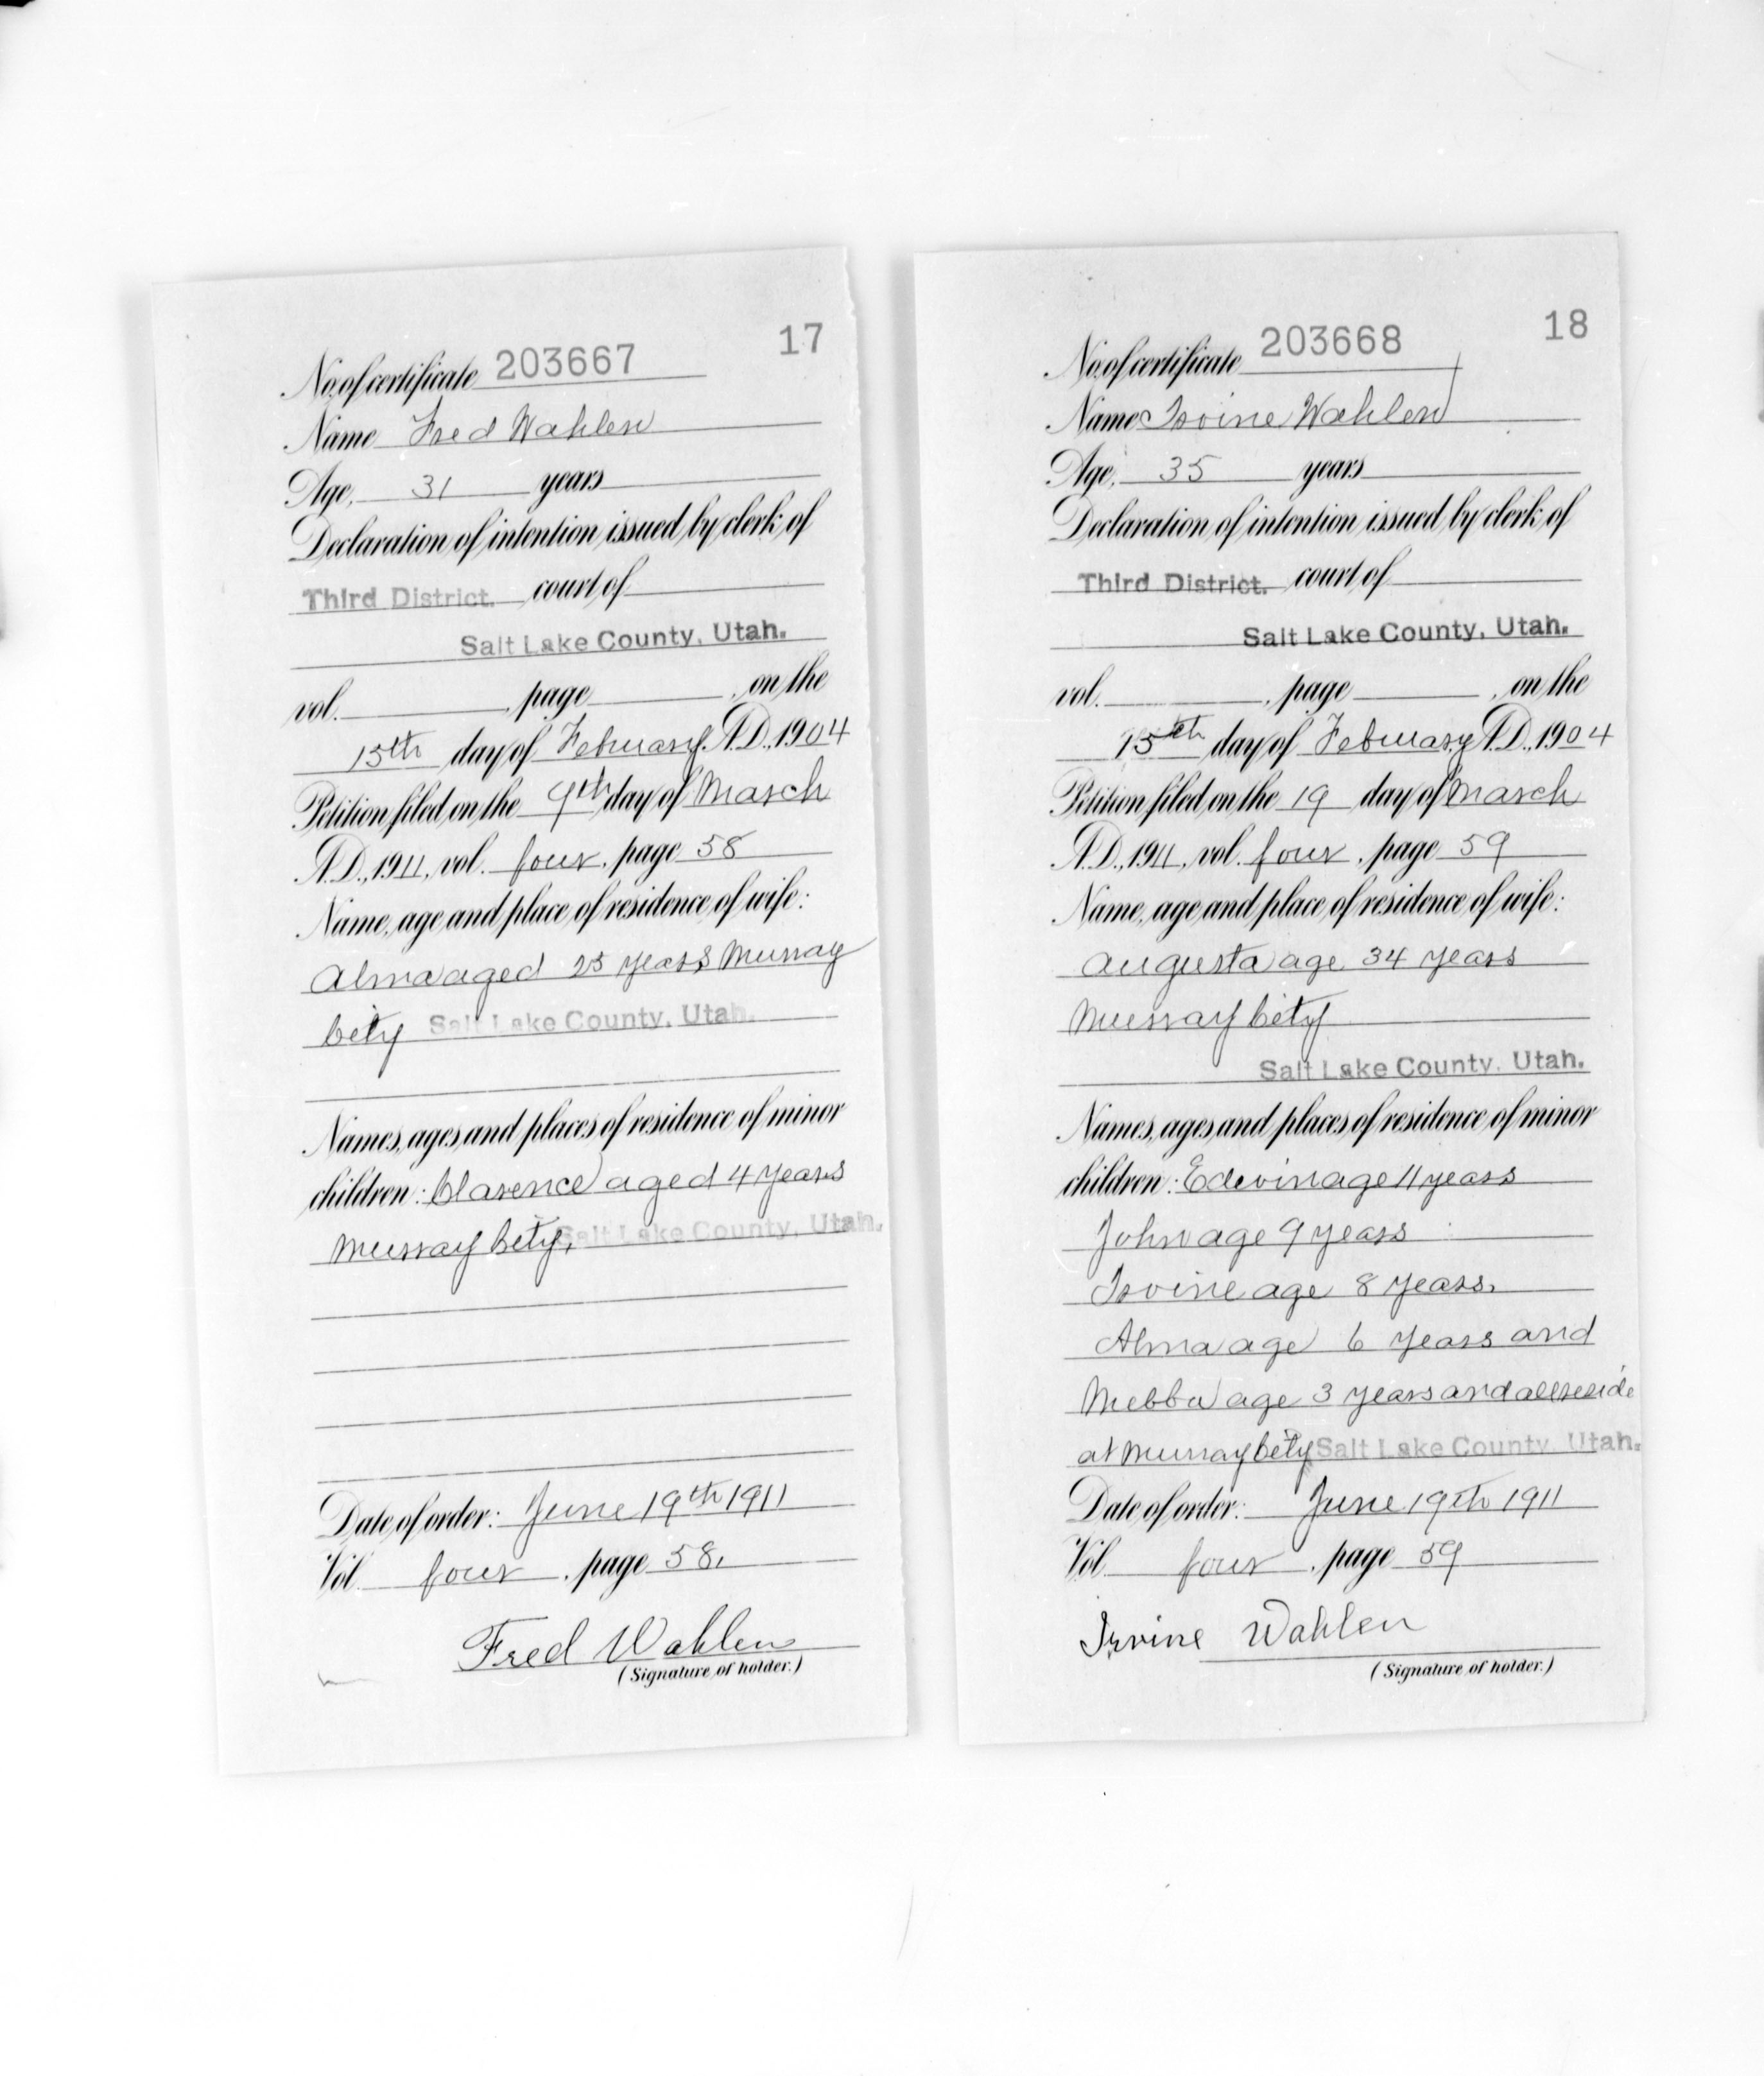 17
No. of certificate 203667
Name Fred Wahlen
Age, 31 years
Declaration of intention issued by clerk of
Third District. court of
Salt Lake County, Utah.
vol. , page , on the
15th day of February A.D., 1904
Petition filed on the 9th day of March
A.D., 1911, vol. four, page 58
Name, age and place of residence of wife:
Alma aged 25 years Murray
City Salt Lake County, Utah.
Names, ages and places of residence of minor
children: Clarence aged 4 years
Murray City, Salt Lake County, Utah.
Date of order: June 19th 1911
Vol. four, page 58.
Fred Wahlen
(Signature of holder.)
18
No. of certificate 203668
Name Irvine Wahlen
Age, 35 years
Declaration of intention issued by clerk of
Third District. court of
Salt Lake County, Utah.
vol. , page , on the
15th day of February A.D., 1904
Petition filed on the 19 day of March
A.D., 1911, vol. four, page 59
Name, age and place of residence of wife:
Augusta age 34 years
Murray City
Salt Lake County, Utah.
Names, ages and places of residence of minor
children: Edwin age 11 years
John age 9 years
Irvine age 8 years.
Alma age 6 years and
Mebba age 3 years and all reside
at Murray City Salt Lake County, Utah.
Date of order: June 19th 1911
Vol. four, page 59
Irvine Wahlen
(Signature of holder.)